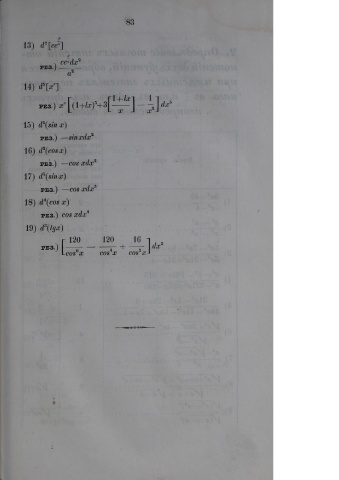 83
13) d³[ce^{x/a}]
РЕЗ.) ce^{x/a}dx³ / a³
14) d³[xˣ]
РЕЗ.) xˣ[(1+lx)³+3[(1+lx)/x]−1/x²]dx³
15) d²(sin x)
РЕЗ.) —sinxdx²
16) d²(cos x)
РЕЗ.) —cos xdx²
17) d³(sin x)
РЕЗ.) —cos xdx³
18) d⁴(cos x)
РЕЗ.) cos xdx⁴
19) d⁵(tgx)
РЕЗ.) [120/cos⁶x — 120/cos⁴x + 16/cos²x]dx⁵